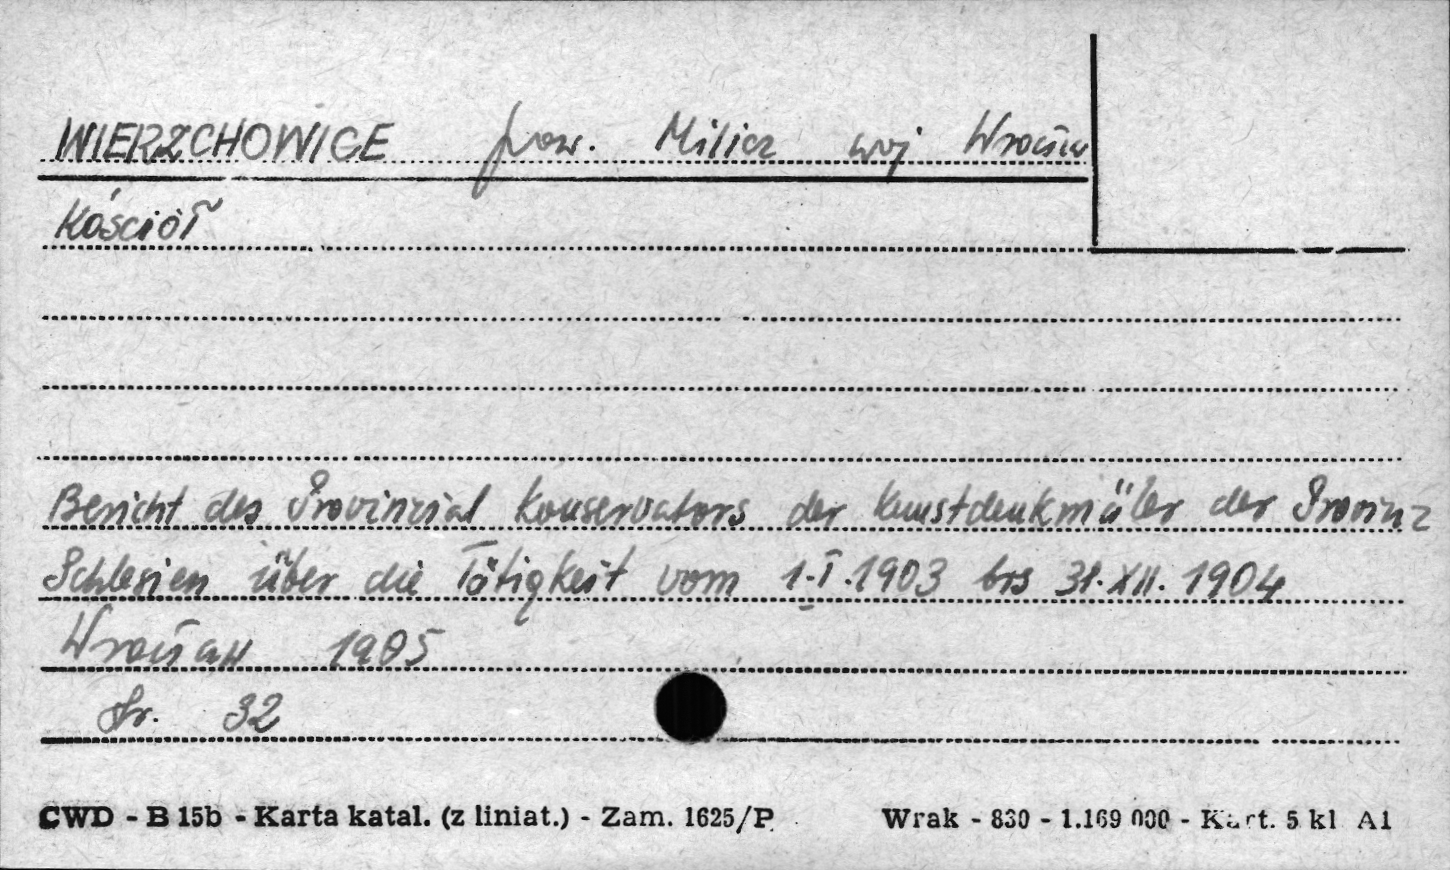 WIERZCHOWICE pow. Milicz woj Wrocław
Kościół
Bericht des Provinzial Konservators der Kunstdenkmäler der Provinz
Schlesien über die Tätigkeit vom 1.I.1903 bis 31.XII.1904
Wrocław 1905
Str. 32
CWD - B 15b - Karta katal. (z liniat.) - Zam. 1625/P Wrak - 830 - 1.169 000 - Kart. 5 kl A1